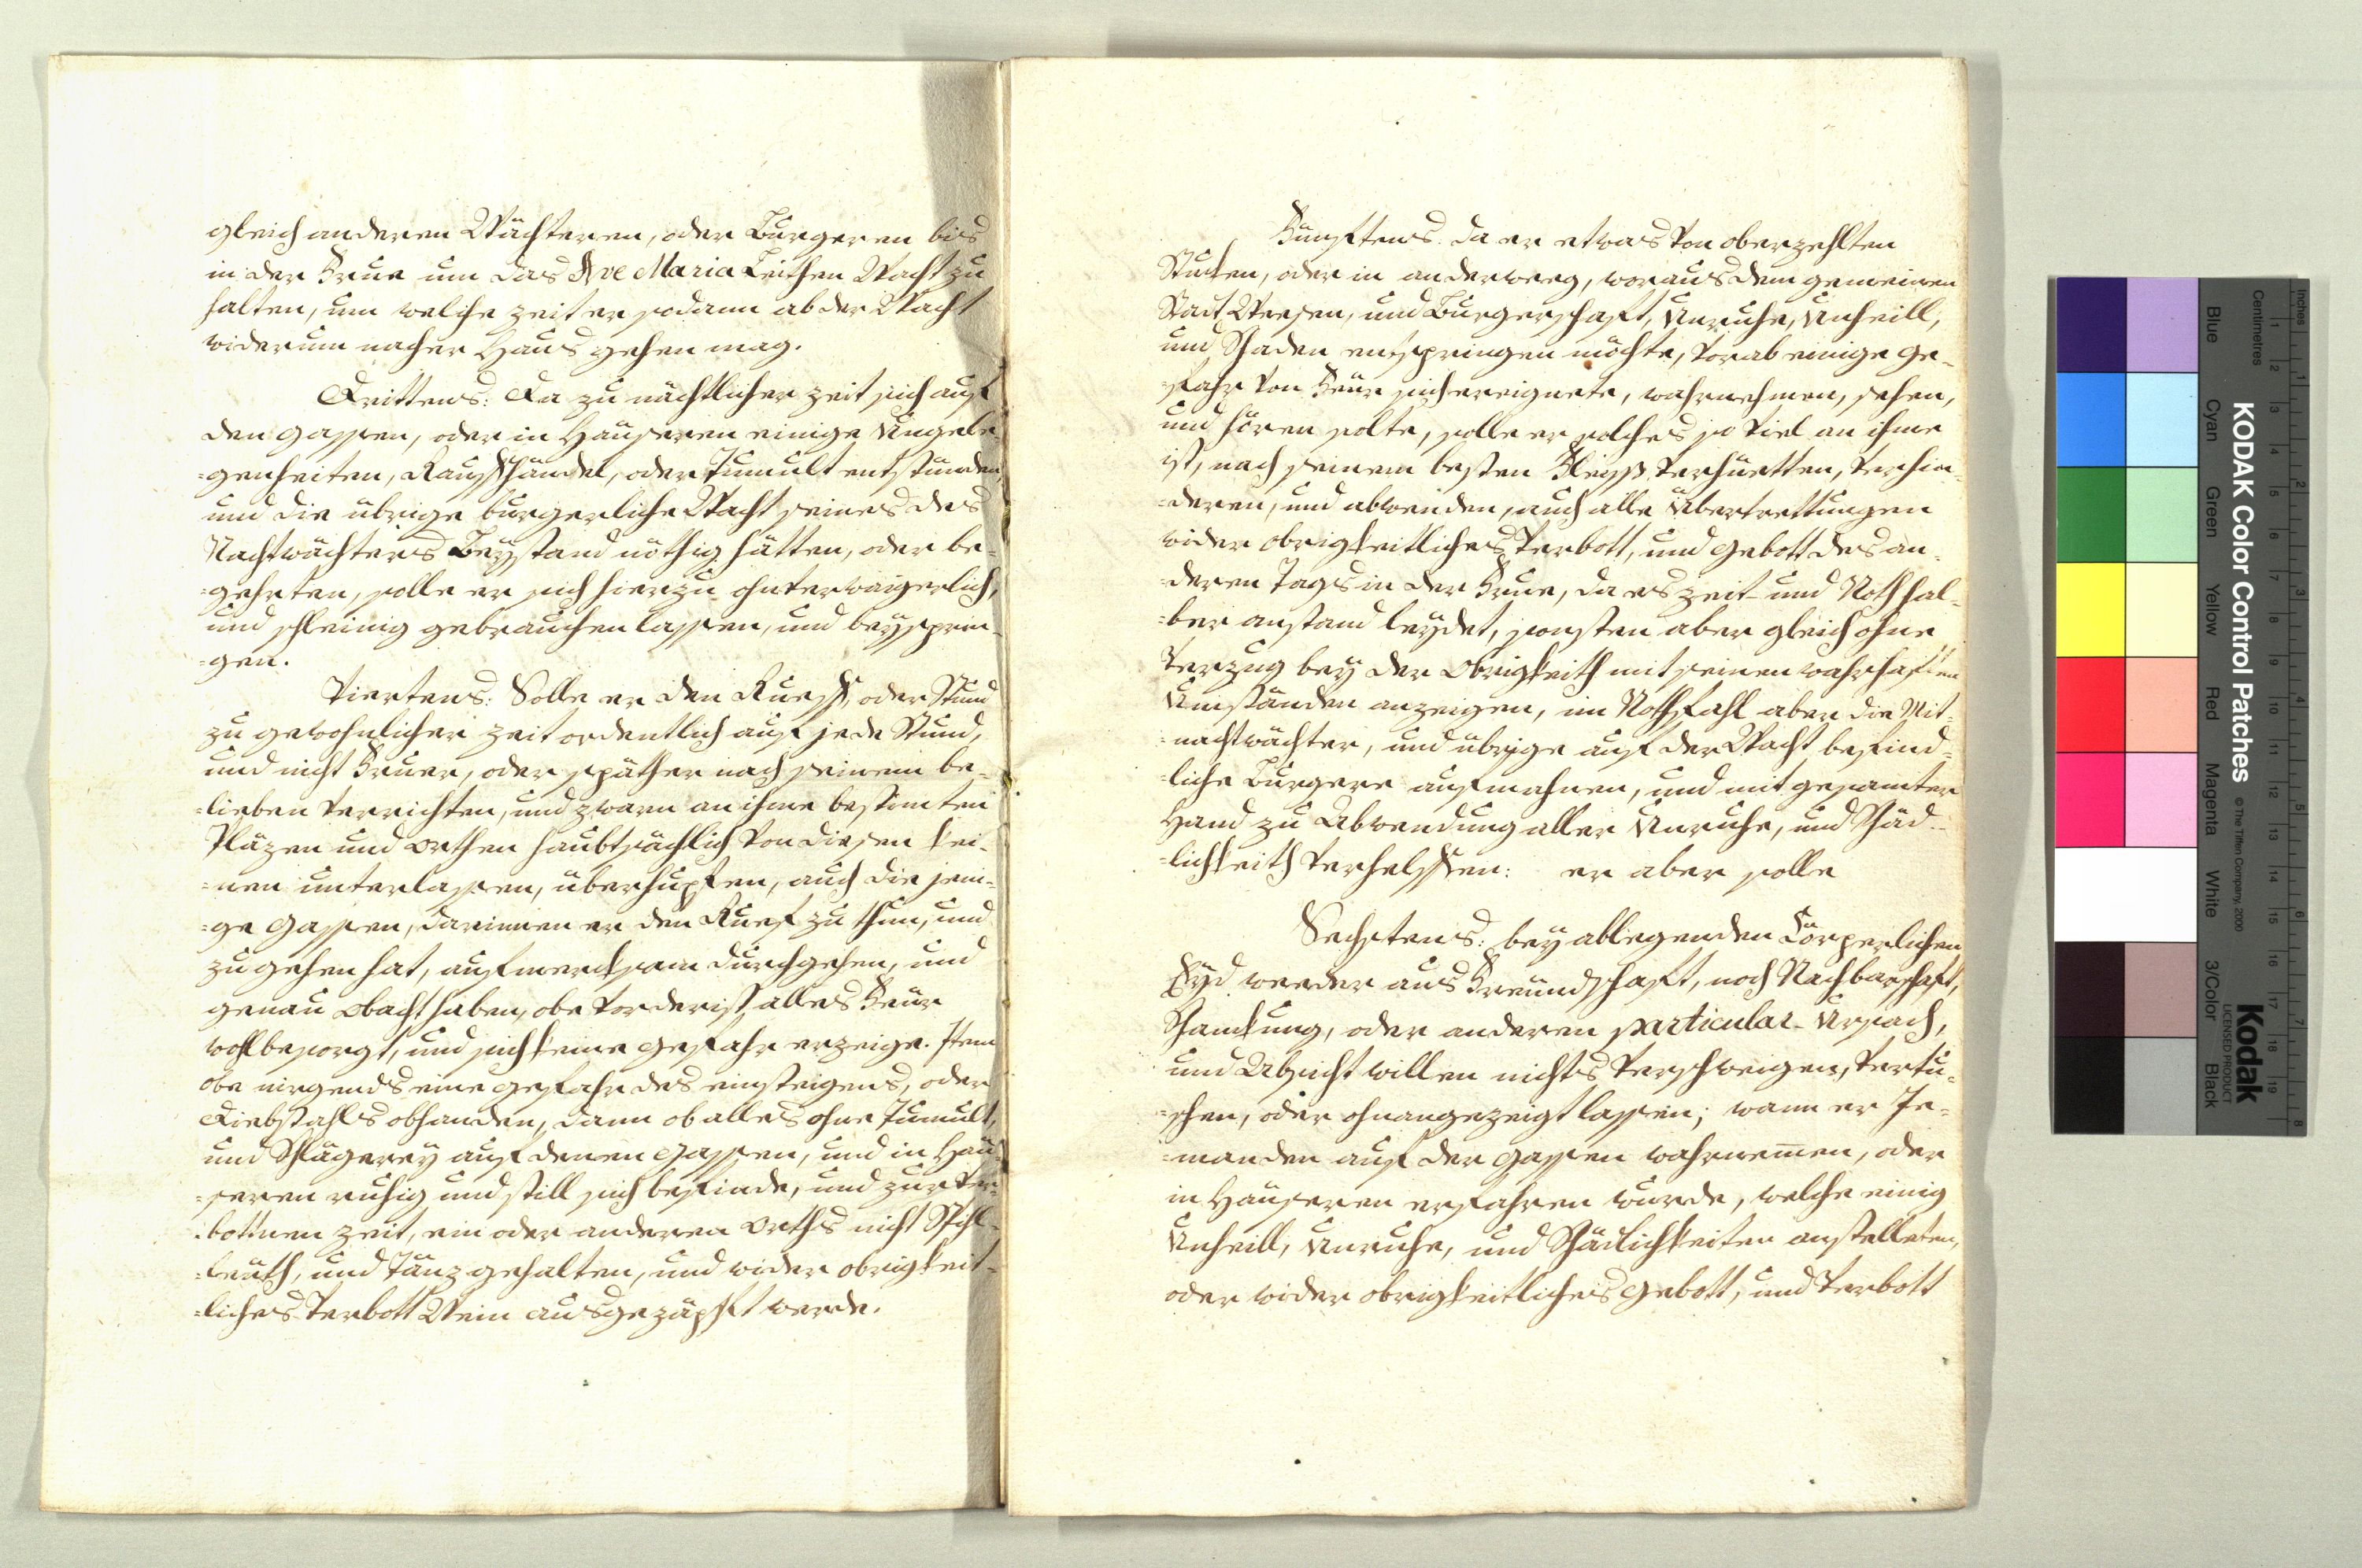 gleich anderen Wächteren, oder Burgeren bis
in der Frue um das Ave Maria Leithen Wacht zu
halten, um welche zeit er sodann ab der Wacht
widerum nacher Haus gehen mag.
Drittens: Da zu nächtlicher zeit sich auf
den gassen, oder in Häuseren einige Ungele
=genheiten, Raufhändel, oder Tumult entstunden,
und die übrige burgerliche Wacht seines des
Nachtwächters Beystand nöthig hätten, oder be=
=gehrten, solle er sich hierzu ohnverwaigerlich,
und schleinig gebrauchen lassen, und beysprin=
=gen.
Viertens: Solle er den Rueff, oder Stund
zu gewohnlicher zeit ordentlich auf jede Stund,
und nicht Fruer, oder späther nach seinem be=
=lieben verrichten, und zwarn an ihme bestimten
Pläzen und orthen haubtsächlich von diesen kei=
=nen unterlassen, überhupfen, auch die jeni=
=ge gassen, darinnen er den Ruef zu thun, und
zu gehen hat, aufmercksam durchgehen, und
genau obacht haben, obe vorderist alles Feür
wohl besorgt, und sich keine gefahr erzeige. Item
obe nirgends eine gefahr des einsteigens, oder
Diebstahls obhanden, dann ob alles ohne Tumult,
und Schlägerey auf denen gassen, und in Häu=
=seren ruhig und still sich befinde, und zur ver=
=bottnen zeit, ein oder anderen orths nicht Spihl=
=leuth, und Tänz gehalten, und wider obrigkeit=
=liches Verbott Wein ausgezäpft werde.
Fünftens. da er etwas von oberzehlten
Stucken, oder in anderweeg, woraus dem gemeinen
Stadt Weesen, und Burgerschaft, Unruhe, Unheill,
und Schaden entspringen möchte, vorab einige ge=
=fahr von Feür sich ereignete, wahrnehmen, sehen,
und hören solte, solle er solches so viel an ihme
ist, nach seinem besten Fleiß verhüetten, verhin=
=deren, und abwenden, auch alle Übertrettungen
wider obrigkeitliches Verbott, und gebott des an=
=deren Tags in der Frue, da es zeit= und Noth hal=
=ber anstand leydet, sonsten aber gleich ohne
Verzug bey der obrigkeith mit seinen wahrhaften
Umständen anzeigen, im Nothfahl aber die Mit=
=nachtwächter, und übrige auf der Wacht befind=
=liche Burgere aufmahnen, und mit gesamter
Hand zu Abwendung aller Unruhe, und Schäd=
=lichkeith verhelffen: er aber solle
Sechstens: bey ablegenden Cörperlichen
Eyd weeder aus Freündschaft, noch Nachbarschaft,
Schanckung, oder anderen particular= Ursach,
und Absicht willen nichts verschweigen, vertu=
=schen, oder ohnangezeigt lassen; wann er Je=
=manden auf der gassen wahrnem̄en, oder
in Häuseren erfahren wurde, welche einig
Unheill, Unruhe, und Schädlichkeiten anstelleten,
oder wider obrigkeitliches gebott, und Verbott
KODAK Color Control Patches
© The Tiffen Company, 2000
Kodak
LICENSED PRODUCT
Blue
Cyan
Green
Yellow
Red
Magenta
White
3/Color
Black
Inches
Centimetres